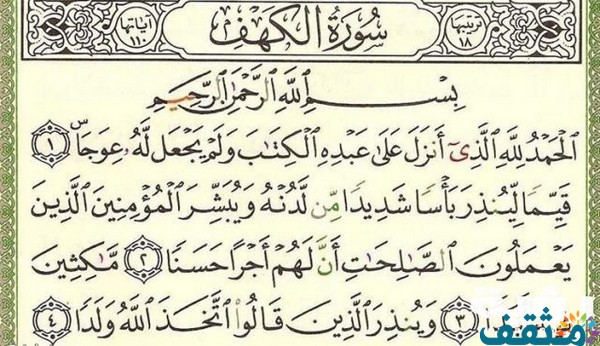 ترتيبها ١٨ سُورَةُ الكَهْفِ آياتها ١١٠
بِسْمِ ٱللَّهِ ٱلرَّحْمَٰنِ ٱلرَّحِيمِ
ٱلْحَمْدُ لِلَّهِ ٱلَّذِىٓ أَنزَلَ عَلَىٰ عَبْدِهِ ٱلْكِتَٰبَ وَلَمْ يَجْعَل لَّهُۥ عِوَجَاۜ ١
قَيِّمًا لِّيُنذِرَ بَأْسًا شَدِيدًا مِّن لَّدُنْهُ وَيُبَشِّرَ ٱلْمُؤْمِنِينَ ٱلَّذِينَ
يَعْمَلُونَ ٱلصَّٰلِحَٰتِ أَنَّ لَهُمْ أَجْرًا حَسَنًا ٢ مَّٰكِثِينَ
٣ وَيُنذِرَ ٱلَّذِينَ قَالُوا۟ ٱتَّخَذَ ٱللَّهُ وَلَدًا ٤
مثقف